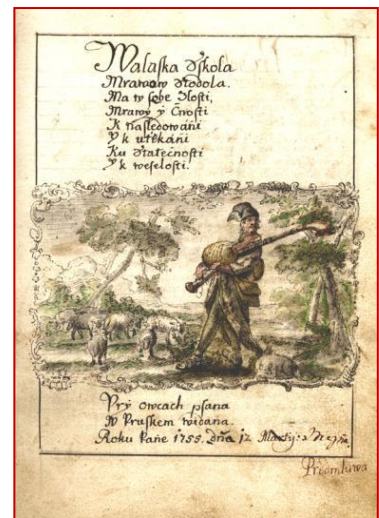 Walaſka Sſkola
Mrawow Stodola.
Ma w ſebe Zloſti,
Mrawy y Cnoſti
K naſledowáńi
Y k utěkáńi
Ku Statečnoſti
Y k weſeloſti.
Pry owcach pſana
W Pruſkem widana.
Roku Pane 1755. dňa 12